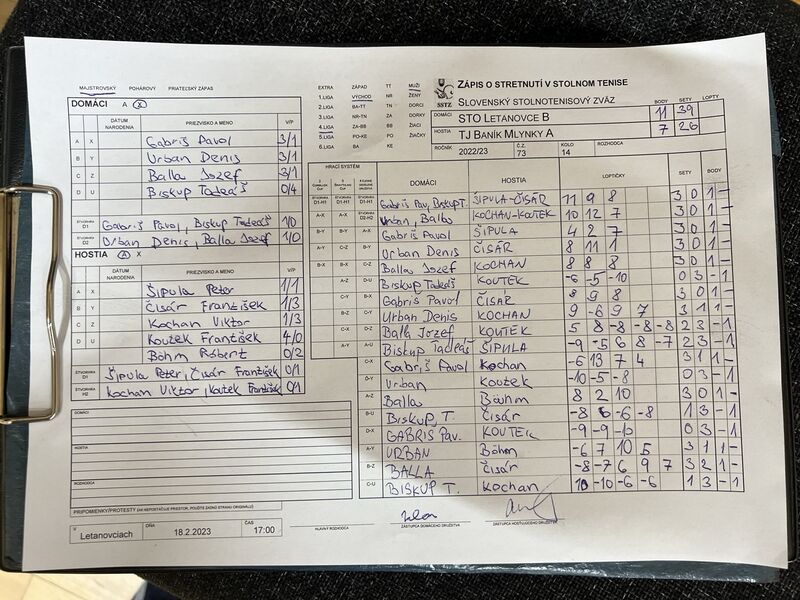 MAJSTROVSKÝ POHÁROVÝ PRIATEĽSKÝ ZÁPAS
DOMÁCI A X
DÁTUM NARODENIA PRIEZVISKO A MENO V/P
A X Gabriš Pavol 3/1
B Y Urban Denis 3/1
C Z Balla Jozef 3/1
D U Biskup Tadeáš 0/4
ŠTVORHRA D1 Gabriš Pavol, Biskup Tadeáš 1/0
ŠTVORHRA D2 Urban Denis, Balla Jozef 1/0
HOSTIA A X
DÁTUM NARODENIA PRIEZVISKO A MENO V/P
A X Šipula Peter 1/1
B Y Čisár František 1/3
C Z Kochan Viktor 1/3
D U Koutek František 4/0
Böhm Róbert 0/2
ŠTVORHRA H1 Šipula Peter, Čisár František 0/1
ŠTVORHRA H2 Kochan Viktor, Koutek František 0/1
DOMÁCI
HOSTIA
ROZHODCA
PRIPOMIENKY/PROTESTY (AK NEPOSTAČUJE PRIESTOR, POUŽITE ZADNÚ STRANU ORIGINÁLU)
V Letanovciach DŇA 18.2.2023 ČAS 17:00
HLAVNÝ ROZHODCA
ZÁSTUPCA DOMÁCEHO DRUŽSTVA
ZÁSTUPCA HOSŤUJÚCEHO DRUŽSTVA
EXTRA ZÁPAD TT MUŽI
1.LIGA VÝCHOD NR ŽENY
2.LIGA BA-TT TN DORCI
3.LIGA NR-TN ZA DORKY
4.LIGA ZA-BB BB ŽIACI
5.LIGA PO-KE PO ŽIAČKY
6.LIGA BA KE
SSTZ
ZÁPIS O STRETNUTÍ V STOLNOM TENISE
SLOVENSKÝ STOLNOTENISOVÝ ZVÄZ
BODY SETY LOPTY
DOMÁCI STO LETANOVCE B 11 39
HOSTIA TJ BANÍK MLYNKY A 7 26
ROČNÍK 2022/23 Č.Z. 73 KOLO 14 ROZHODCA
HRACÍ SYSTÉM DOMÁCI HOSTIA LOPTIČKY SETY BODY
Gabriš Pav, Biskup T. ŠIPULA-ČISÁR 11 9 8 3 0 1 -
Urban, Balla KOCHAN-KOUTEK 10 12 7 3 0 1 -
Gabriš Pavol ŠIPULA 4 2 7 3 0 1 -
Urban Denis ČISÁR 8 11 1 3 0 1 -
Balla Jozef KOCHAN 8 8 8 3 0 1 -
Biskup Tadeáš KOUTEK -6 -5 -10 0 3 - 1
Gabriš Pavol ČISAR 8 9 8 3 0 1 -
Urban Denis KOCHAN 9 -6 9 7 3 1 1 -
Balla Jozef KOUTEK 5 8 -8 -8 -8 2 3 - 1
Biskup Tadeáš ŠIPULA -9 -5 6 8 -7 2 3 - 1
C-X Gabriš Pavol Kochan -6 13 7 4 3 1 1 -
D-Y Urban Koutek -10 -5 -8 0 3 - 1
A-Z Balla Böhm 8 2 10 3 0 1 -
B-U Biskup, T. Čisár -8 6 -6 -8 1 3 - 1
D-X GABRIS Pav. KOUTEK -9 -9 -10 0 3 - 1
A-Y URBAN Böhm -6 7 10 5 3 1 1 -
B-Z BALLA čisár -8 -7 6 9 7 3 2 1 -
C-U BISKUP T. Kochan 10 -10 -6 -6 1 3 - 1